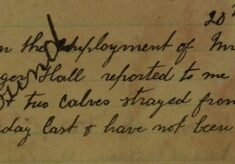 20th
in the employment of Mr
Hall reported to me
two calves strayed from
day last & have not been
found